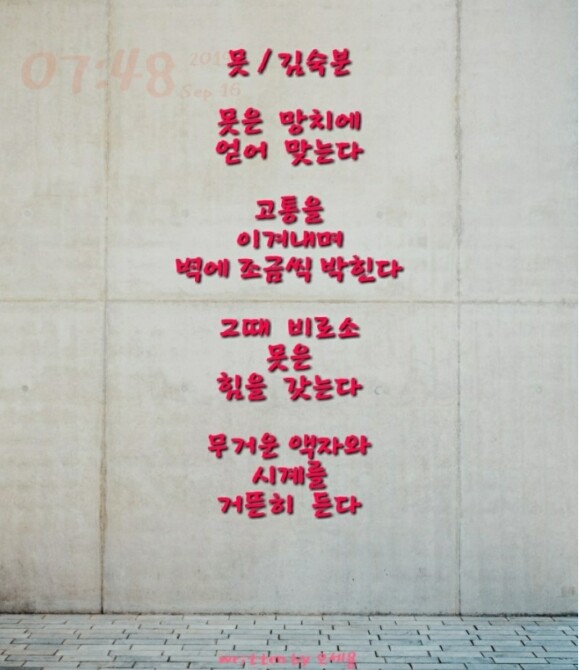 07:48
Sep 16
못 / 김숙분
못은 망치에
얻어 맞는다
고통을
이겨내며
벽에 조금씩 박힌다
그때 비로소
못은
힘을 갖는다
무거운 액자와
시계를
거뜬히 든다